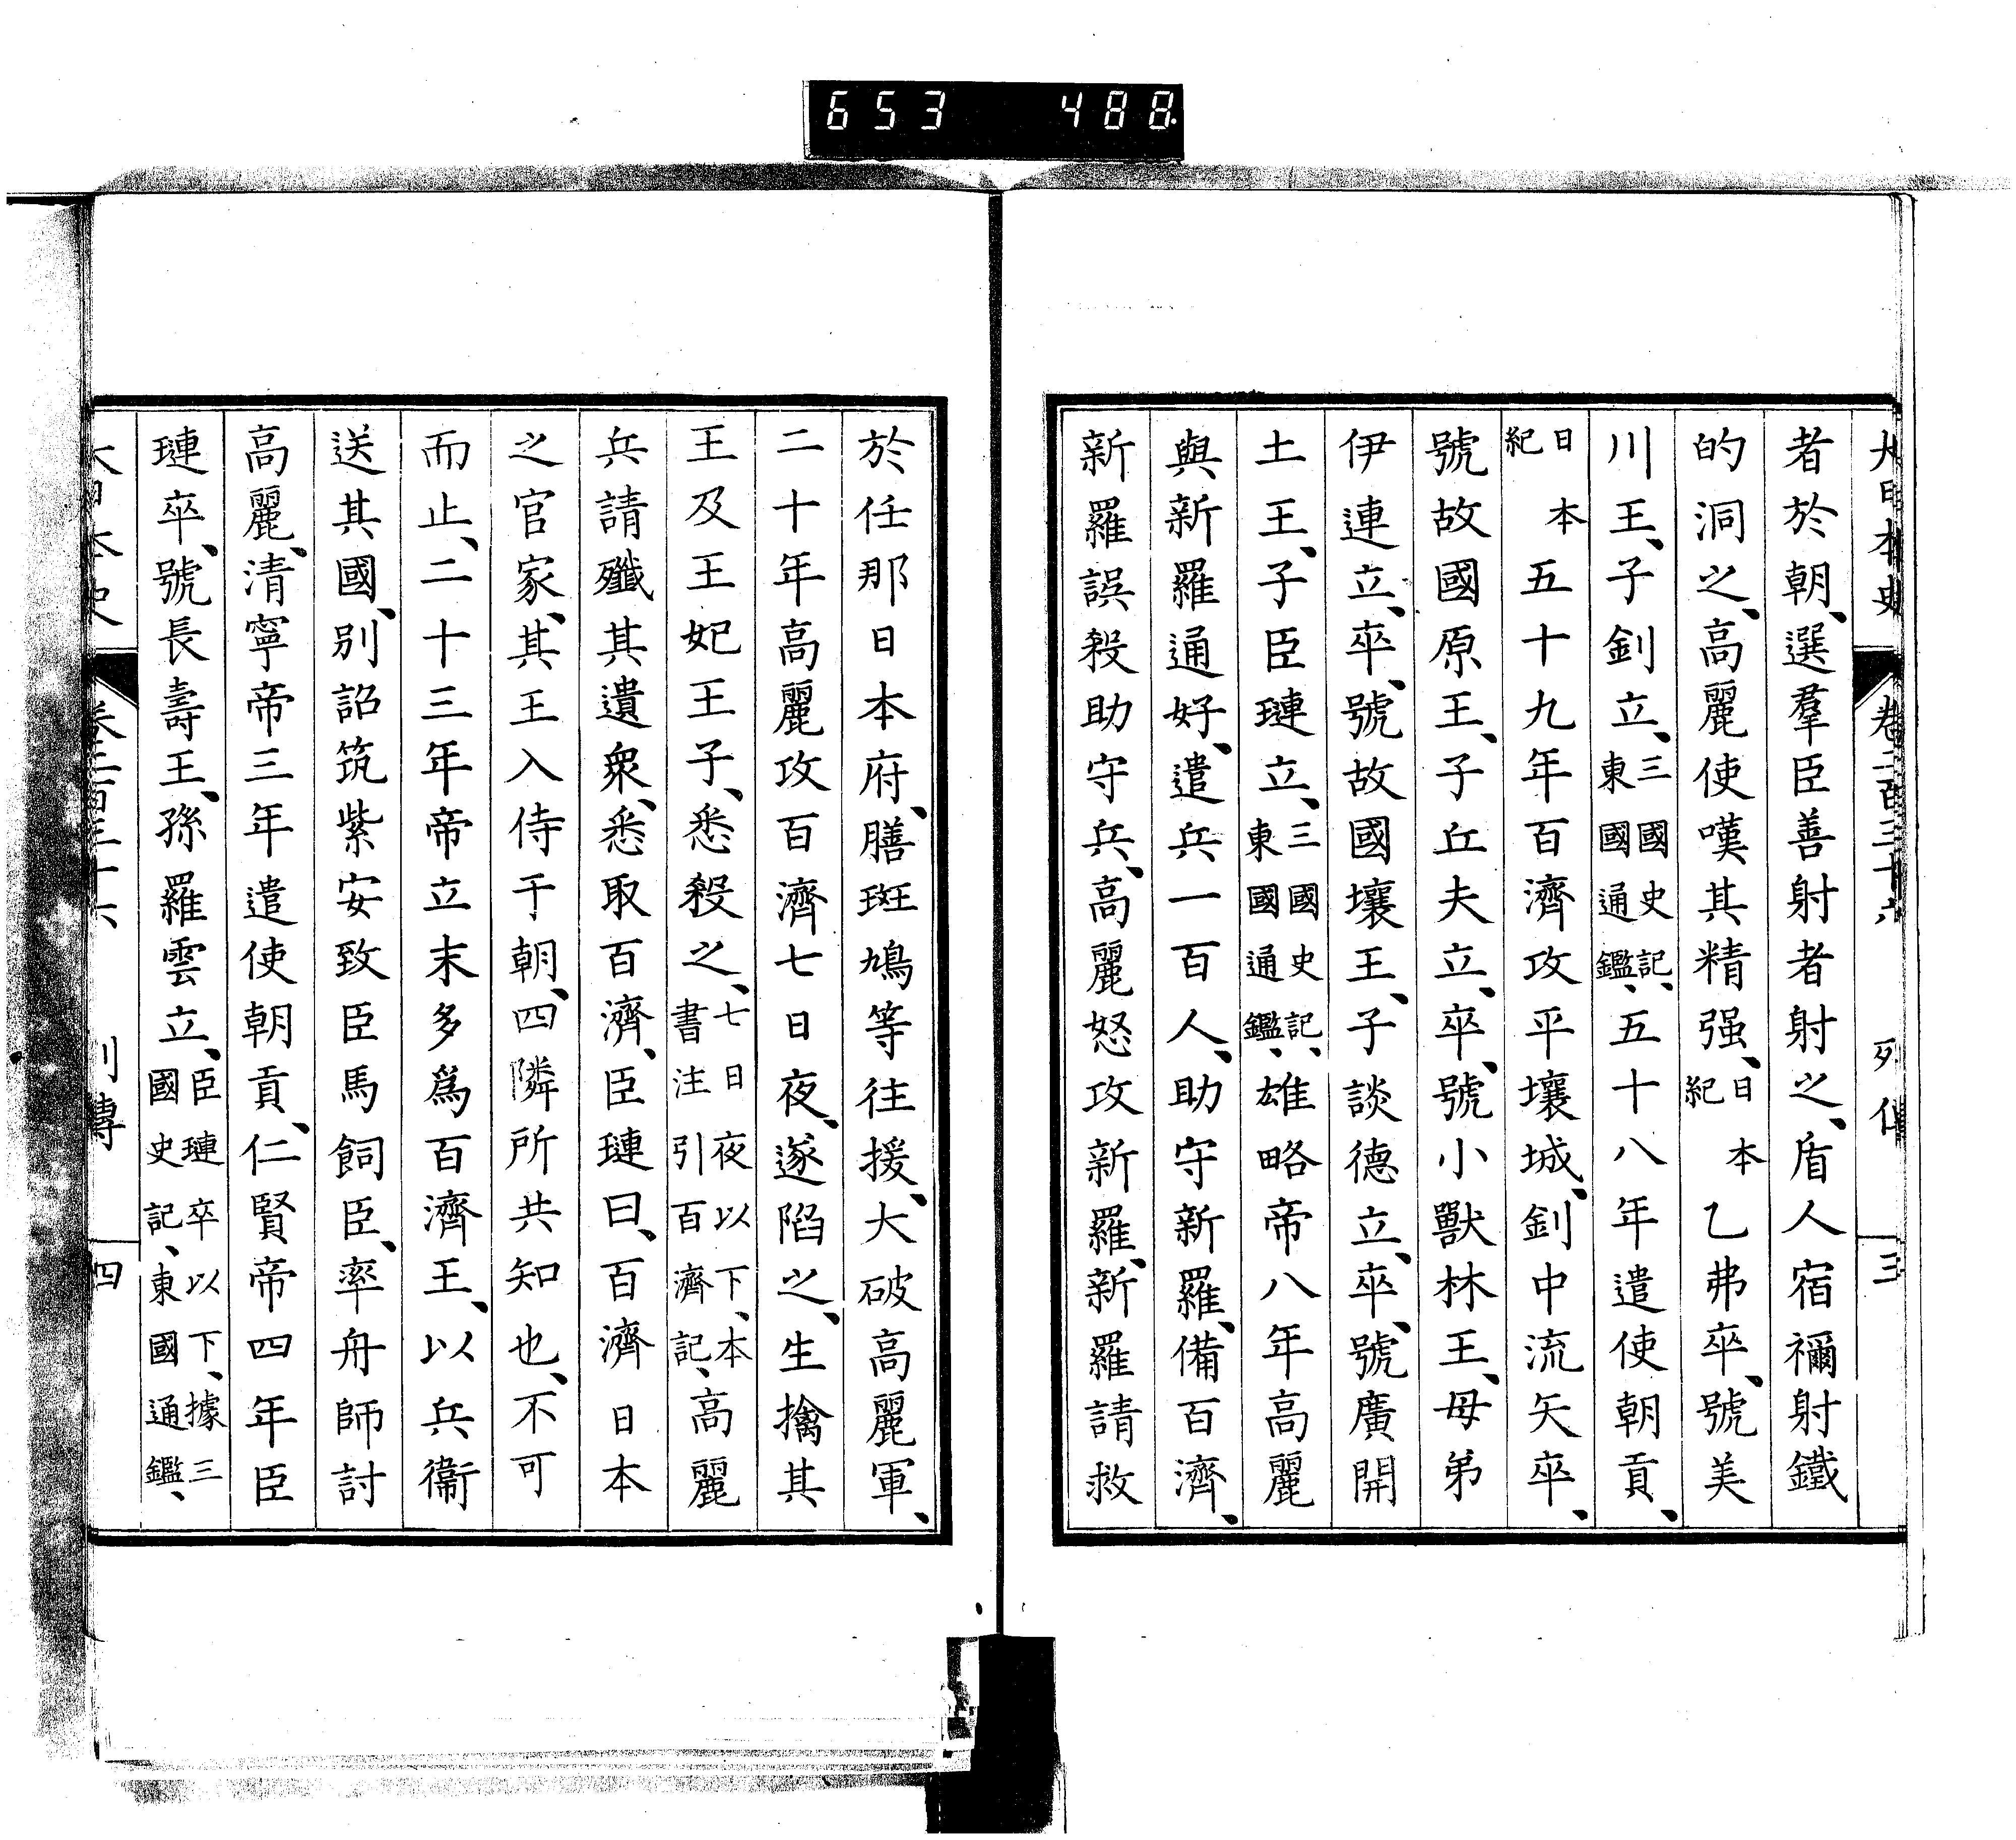 653 488
大日本史 卷二百三十六 列傳 三
者於朝、選羣臣善射者射之、盾人宿禰射鐵
的洞之、高麗使嘆其精强、日本紀乙弗卒、號美
川王、子釗立、三國史記、東國通鑑、五十八年遣使朝貢、
日本紀五十九年百濟攻平壤城、釗中流矢卒、
號故國原王、子丘夫立、卒、號小獸林王、母弟
伊連立、卒、號故國壤王、子談德立、卒、號廣開
土王、子臣璉立、三國史記、東國通鑑、雄略帝八年高麗
與新羅通好、遣兵一百人、助守新羅、備百濟、
新羅誤殺助守兵、高麗怒攻新羅、新羅請救
於任那日本府、膳斑鳩等往援、大破高麗軍、
二十年高麗攻百濟七日夜、遂陷之、生擒其
王及王妃王子、悉殺之、七日夜以下、本書注引百濟記、高麗
兵請殲其遺衆、悉取百濟、臣璉曰、百濟日本
之官家、其王入侍于朝、四隣所共知也、不可
而止、二十三年帝立末多爲百濟王、以兵衞
送其國、別詔筑紫安致臣馬飼臣、率舟師討
高麗、清寧帝三年遣使朝貢、仁賢帝四年臣
璉卒、號長壽王、孫羅雲立、臣璉卒以下、據三國史記、東國通鑑、
大日本史 卷二百三十六 列傳 四